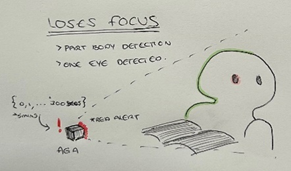 LOSES FOCUS
> PART BODY DETECTION
> ONE EYE DETECTED.
{0,1,...300
*5mins
! *AGA ALERT
AGA